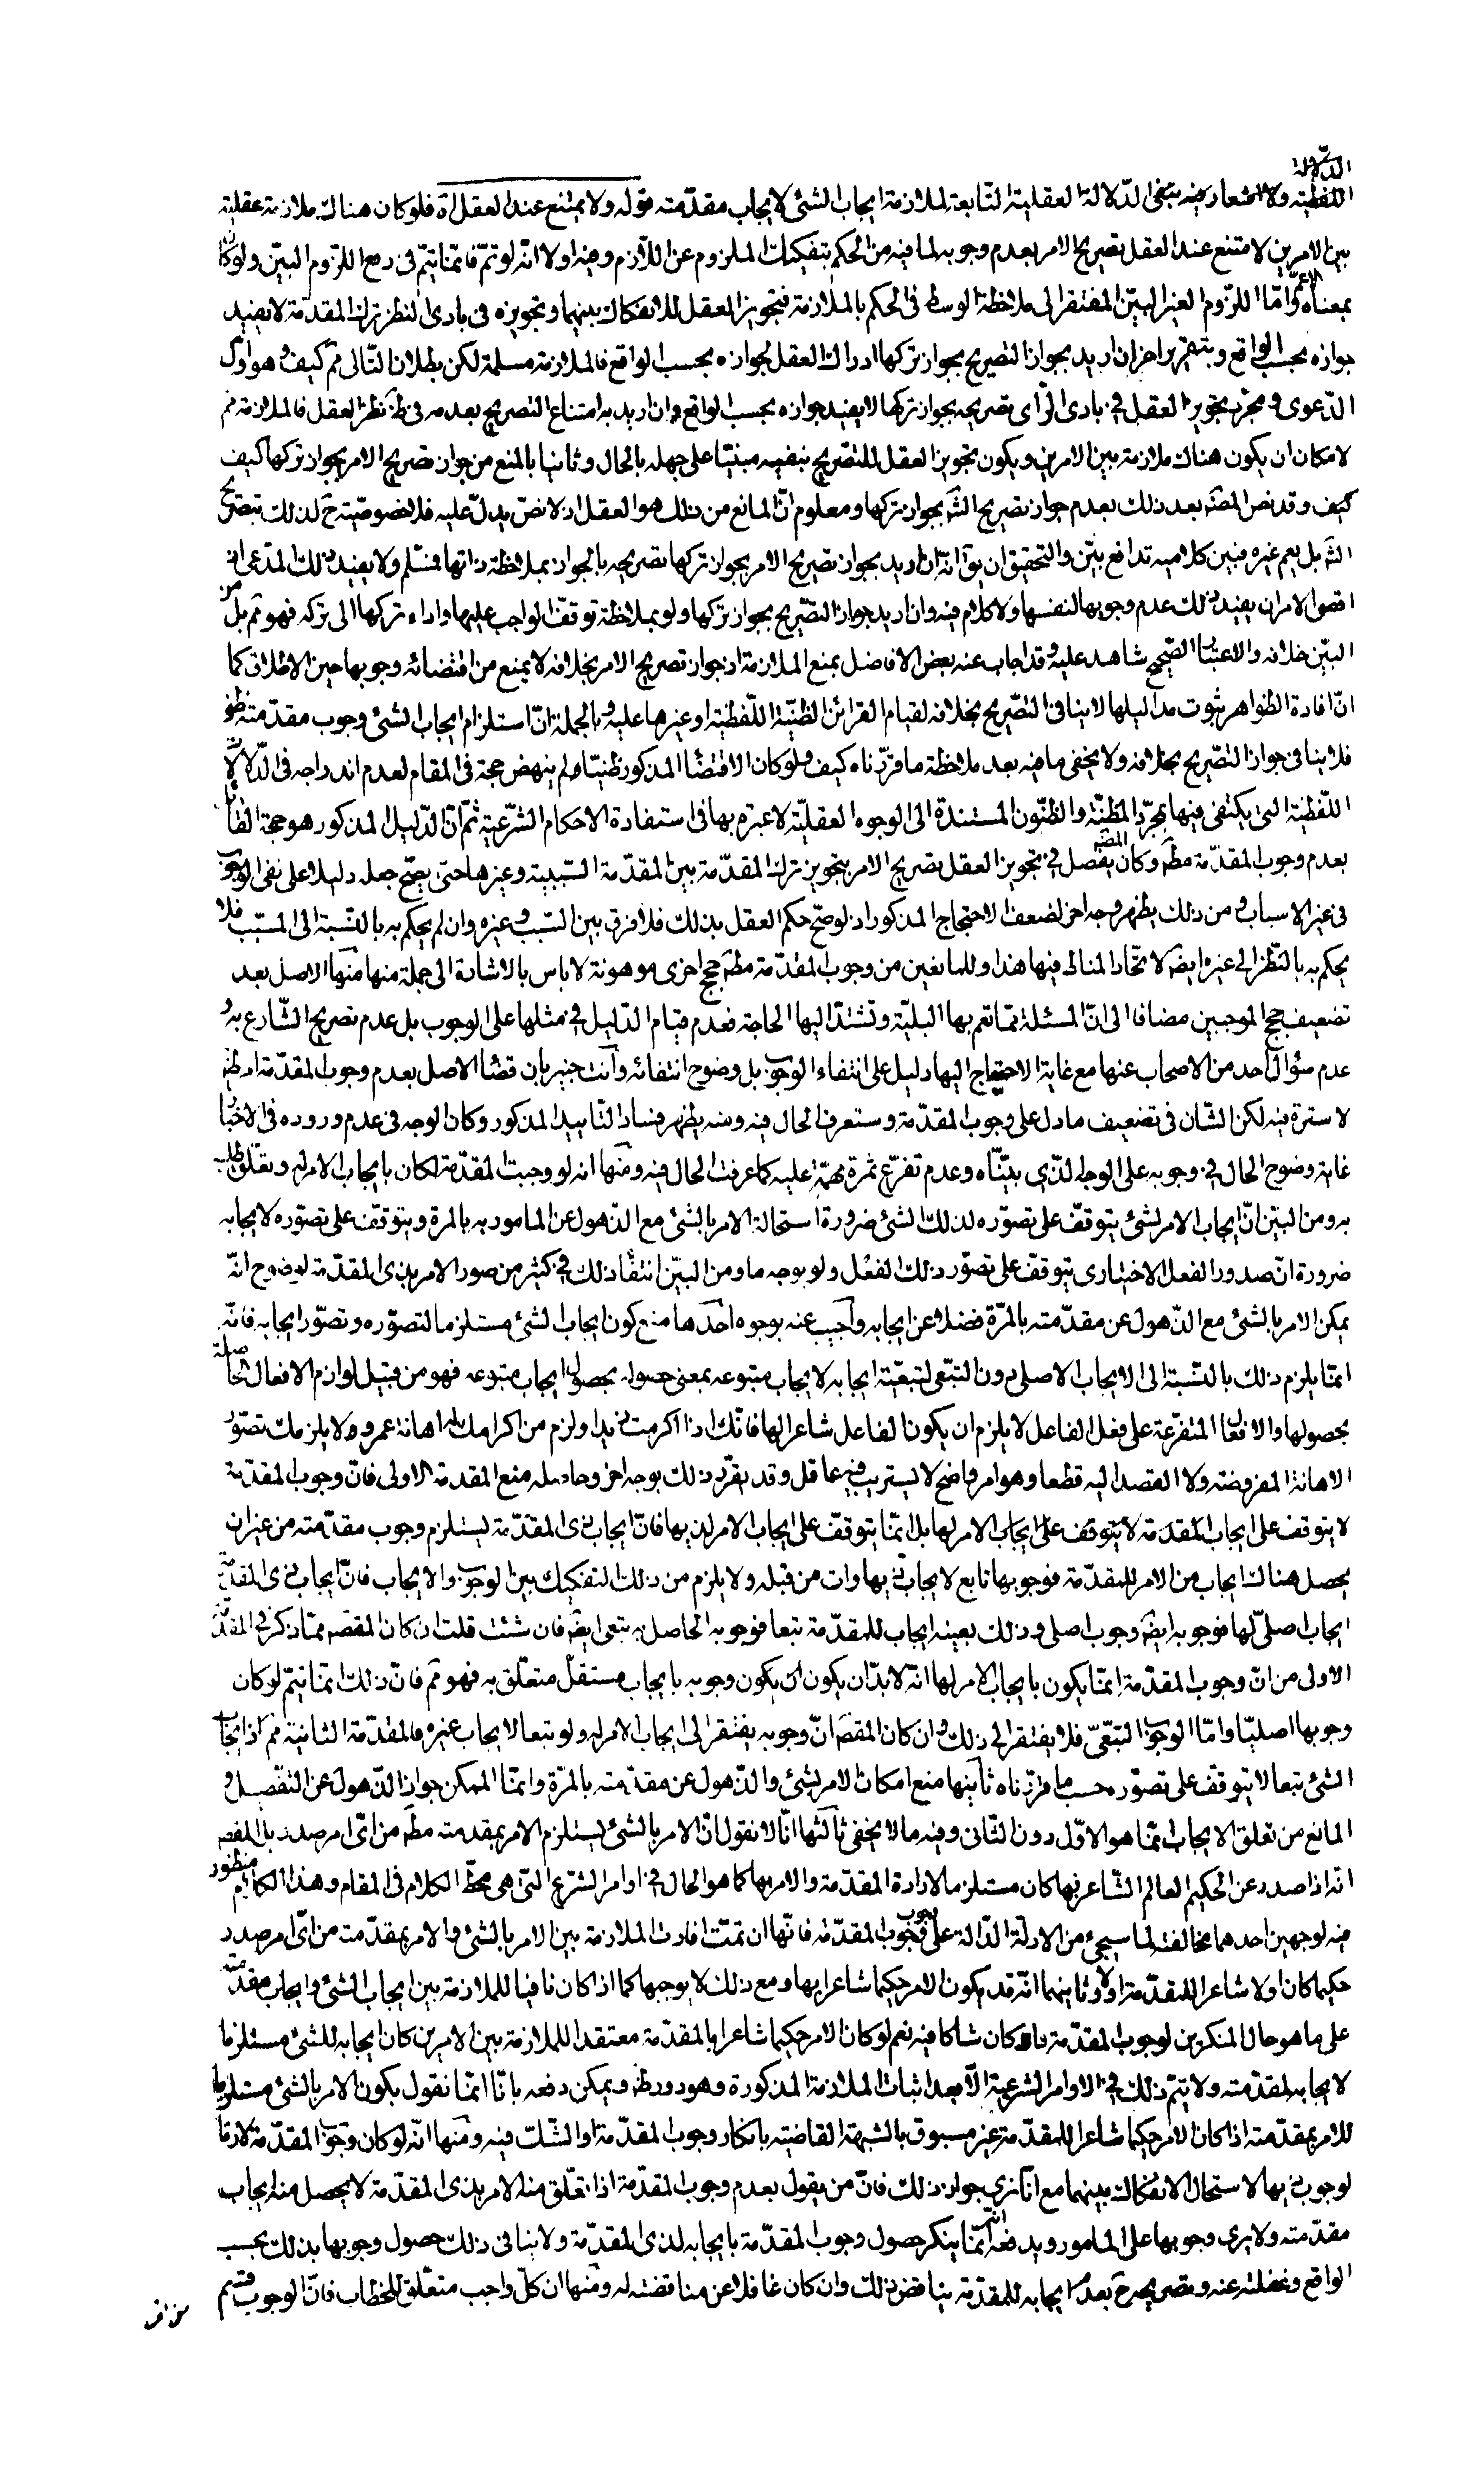 الدلالة
اللفظيه ولا اشعار فيه بنفى الدّلالة العقليّة التّابعة لملازمة ايجاب الشئ لايجاب مقدّمته قوله ولا يمتنع عند العقل اه فلو كان هناك ملازمة عقليّة
بين الامرين لامتنع عند العقل تصريح الامر بعدم وجوبه لما فيه من الحكم بتفكيك الملزوم عن اللّازم وفيه اولا انّه لو تمّ فانّما يتمّ فى دفع اللّزوم البيّن ولو كان
بمعناه الاعمّ وامّا اللّزوم الغير البيّن المفتقر الى ملاحظة الوسط فى الحكم بالملازمة فتجويز العقل للانفكاك بينهما وتجويزه فى بادى النظر ترك المقدّمة لا يفيد
جوازه بحسب الواقع وبتقرير اخر ان اريد بجواز التصريح بجواز تركها ادراك العقل لجوازه بحسب الواقع فالملازمة مسلمة لكن بطلان التّالى مم كيف وهو اوّل
الدّعوى ومجرّد تجويز العقل فى بادى الرّاى تصريحه بجواز تركها لا يفيد جوازه بحسب الواقع وان اريد به امتناع التصريح بعدمه فى ظ نظر العقل فالملازمة مم
لامكان ان يكون هناك ملازمة بين الامرين ويكون تجويز العقل للتصريح بنفيه مبنيّا على جهله بالحال وثانيا بالمنع من جواز تصريح الامر بجواز تركها كيف
كيف وقد نص المصّ بعد ذلك بعدم جواز تصريح الشّ بجواز تركها ومعلوم انّ المانع من ذلك هو العقل اذ لا نصّ يدلّ عليه فلا خصوصيّة ح لذلك بتصريح
الشّ بل يعم غيره فبين كلاميه تدافع بيّن والتحقيق ان يق انّه ان اريد بجواز تصريح الامر بجواز تركها تصريحه بالجواز بملاحظة ذاتها فمسّلم ولا يفيد ذلك المدّعى اذ
اقصى الامر ان يفيد ذلك عدم وجوبها لنفسها ولا كلام فيه وان اريد جواز التصّريح بجواز تركها ولو بملاحظة توقّف الواجب عليها واداء تركها الى تركه فهو مم بل من
البيّن خلافه والاعتبار الصّحيح شاهد عليه وقد اجاب عنه بعض الافاضل بمنع الملازمة اذ جواز تصريح الامر بخلافه لا يمنع من اقتضائه وجوبها حين الاطلاق كما
انّ افادة الظواهر ثبوت مداليلها لا ينافى التصّريح بخلافه لقيام القرائن الظنيّة اللّفظيّة او غيرها عليه وبالجملة انّ استلزام ايجاب الشئ وجوب مقدّمته ظنى
فلا ينافى جواز التصّريح بخلافه ولا يخفى ما فيه بعد ملاحظة ما قرّرناه كيف ولو كان الاقتضاء المذكور ظنيّا لم ينهض حجة فى المقام لعدم اندراجه فى الدّلالة
اللّفظية التى يكتفى فيها بمجرّد المظنّة والظنّون المستندة الى الوجوه العقليّة لا عبرة بها فى استفادة الاحكام الشّرعيّة ثمّ انّ الدّليل المذكور هو حجة القائل
بعدم وجوب المقدّمة مطّ وكان المصّ يفصل فى تجويز العقل تصريح الامر بتجويز ترك المقدّمة بين المقدّمة السّببيّة وغيرها حتى يصحّ جعله دليلا على نفى الوجوب
فى غير الاسباب ومن ذلك يظهر وجه اخر لضعف الاحتجاج المذكور اذ لو صحّ حكم العقل بذلك فلا فرق بين السّبب وغيره وان لم يحكم به بالنّسبة الى المسبّب فلا
يحكم به بالنّظر الى غيره ايضّ لاتّحاد المناط فيها هذا وللمانعين من وجوب المقدّمة مطّ حجج اخرى موهونة لا باس بالاشارة الى جملة منها منها الاصل بعد
تضعيف حجج الموجبين مضافا الى انّ المسئلة ممّا تعم بها البليّة وتشتدّ اليها الحاجة فعدم قيام الدّليل فى مثلها على الوجوب بل عدم تصريح الشّارع به و
عدم سؤال احد من الاصحاب عنها مع غاية الاحتياج اليها دليل على انتفاء الوجوب بل وضوح انتفائه وانت خبير بان قضاء الاصل بعدم وجوب المقدّمة امر ظ
لا سترة فيه لكن الشّان فى تضعيف ما دل على وجوب المقدّمة وستعرف الحال فيه ومنه يظهر فساد التّاييد المذكور وكان الوجه فى عدم وروده فى الاخبار
غاية وضوح الحال فى وجوبه على الوجه الّذى بيّنّاه وعدم تفرّع ثمرة مهمّة عليه كما عرفت الحال فيه ومنها انه لو وجبت المقدّمة لكان بايجاب الامر له وتعلّق طلبه
به ومن البيّن انّ ايجاب الامر لشئ يتوقّف على تصوّره لذلك الشئ ضرورة استحالة الامر بالشئ مع الذّهول عن المامور به بالمرة ويتوقف على تصوّره لايجابه
ضرورة انّ صدور الفعل الاختيارى يتوقف على تصوّر ذلك الفعل ولو بوجه ما ومن البيّن انتفاء ذلك فى كثير من صور الامر بذى المقدّمة لوضوح انّه
يمكن الامر بالشئ مع الذّهول عن مقدّمته بالمرّة فضلا عن ايجابه واجيب عنه بوجوه احدها منع كون ايجاب الشئ مستلزما لتصوّره وتصوّر ايجابه فانّه
انمّا يلزم ذلك بالنّسبة الى الايجاب الاصلى دون التبعّى لتبعيّة ايجابه لايجاب متبوعه بمعنى حصوله بحصول ايجاب متبوعه فهو من قبيل لوازم الافعال الحاصلة
بحصولها والافعال المتفرّعة على فعل الفاعل لا يلزم ان يكون الفاعل شاعرا لها فانّك اذا اكرمت زيدا ولزم من اكرامك له اهانة عمرو ولا يلزمك تصوّر
الاهانة المفروضة ولا القصد اليه قطعا وهو امر واضح لا يستريب فيه عاقل وقد يقرّر ذلك بوجه اخر وحاصله منع المقدمة الاولى فانّ وجوب المقدّمة
لا يتوقف على ايجاب المقدّمة لا يتوقف على ايجاب الامر لها بل انمّا يتوقّف على ايجاب الامر لذيها فانّ ايجاب ذى المقدّمة يستلزم وجوب مقدّمته من غير ان
يحصل هناك ايجاب من الامر للمقدّمة فوجوبها تابع لايجاب ذيها وات من قبله ولا يلزم من ذلك التفكيك بين الوجوب والايجاب فانّ ايجاب ذى المقدّمة
ايجاب اصلىّ لها فوجوبه ايضّ وجوب اصلى وذلك بعينه ايجاب للمقدّمة تبعا فوجوبه الحاصل به تبعى ايضّ فان شئت قلت ان كان المقصّ ممّا ذكر فى المقدّمة
الاولى من انّ وجوب المقدّمة انمّا يكون بايجاب الامر لها انّه لا بدّ ان يكون ان يكون وجوبه بايجاب مستقلّ متعلّق به فهو مم فانّ ذلك انمّا يتمّ لو كان
وجوبها اصليّا وامّا الوجوب التبعّىّ فلا يفتقر الى ذلك وان كان المقصّ انّ وجوبه يفتقر الى ايجاب الامر له ولو تبعا لايجاب غيره فالمقدّمة الثانية مم اذ ايجاب
الشئ تبعا لا يتوقّف على تصوّره حسب ما قرّرناه ثانيها منع امكان الامر لشئ والذّهول عن مقدّمته بالمرّة وانمّا الممكن جواز الذّهول عن التفصيل و
المانع من تعلق الايجاب انمّا هو الاوّل دون الثّانى وفيه ما لا يخفى ثالثها انّا لا نقول انّ الامر بالشئ يستلزم الامر بمقدمته مطّ من اىّ امر صدر بل المقصّ
انّه اذا صدر عن الحكيم العالم الشّاعر بها كان مستلزما لارادة المقدّمة والامر بها كما هو الحال فى اوامر الشّرع التى هى محطّ الكلام فى المقام وهذا الكلام منظور
فيه لوجهين احدهما مخالفته لما سيجئ من الادلّة الدّالة على وجوب المقدّمة فانّها ان تمّت افادت الملازمة بين الامر بالشئ والامر بمقدّمته من اىّ امر صدر
حكيما كان اولا شاعرا للمقدّمة اولا وثانيهما انّه قد يكون الامر حكيما شاعرا بها ومع ذلك لا يوجبها كما اذا كان نافيا للملازمة بين ايجاب الشئ وايجاب مقدّمته
على ما هو حال المنكرين لوجوب المقدّمة او كان شاكا فيه نعم لو كان الامر حكيما شاعرا بالمقدّمة معتقدا للملازمة بين الامرين كان ايجابه للشئ مستلزما
لايجابه لمقدّمته ولا يتمّ ذلك فى الاوامر الشرعيّة الّا بعد اثبات الملازمة المذكورة وهو دور ظ ويمكن دفعه بانّا انمّا نقول بكون الامر بالشئ مستلزما
للامر بمقدّمته اذا كان الامر حكيما شاعرا للمقدّمة غير مسبوق بالشبهة القاضية بانكار وجوب المقدّمة او الشّك فيه ومنها انّه لو كان وجوب المقدّمة لازما
لوجوب ذيها لاستحال الانفكاك بينهما مع انا نرى جواز ذلك فانّ من يقول بعدم وجوب المقدّمة اذا تعّلق منه الامر بذى المقدّمة لا يحصل منه ايجاب
مقدّمته ولا يرى وجوبها على المامور ويدفعه انّه انمّا ينكر حصول وجوب المقدّمة بايجابه لذى المقدّمة ولا ينافى ذلك حصول وجوبها بذلك بحسب
الواقع وغفلته عنه وتصريحه ح بعدم ايجابه للمقدّمة يناقض ذلك وان كان غافلا عن مناقضته له ومنها ان كلّ واجب متعلّق للخطاب فانّ الوجوب قسم